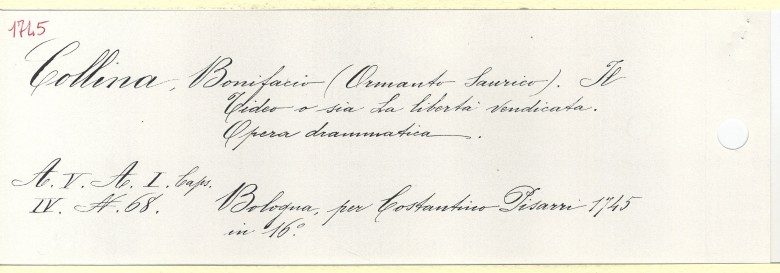 1745
Collina, Bonifacio (Ormanto Saurico). Il
Tideo o sia La libertà vendicata.
Opera drammatica.
A. V. A. I. Caps.
IV. N. 68.
Bologna, per Costantino Pisarri 1745
in 16º